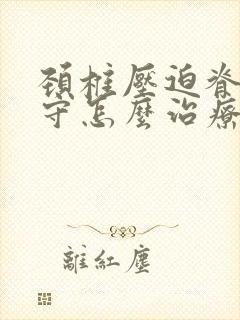 頸柱壓迫脊
守怎麼治療
離紅塵